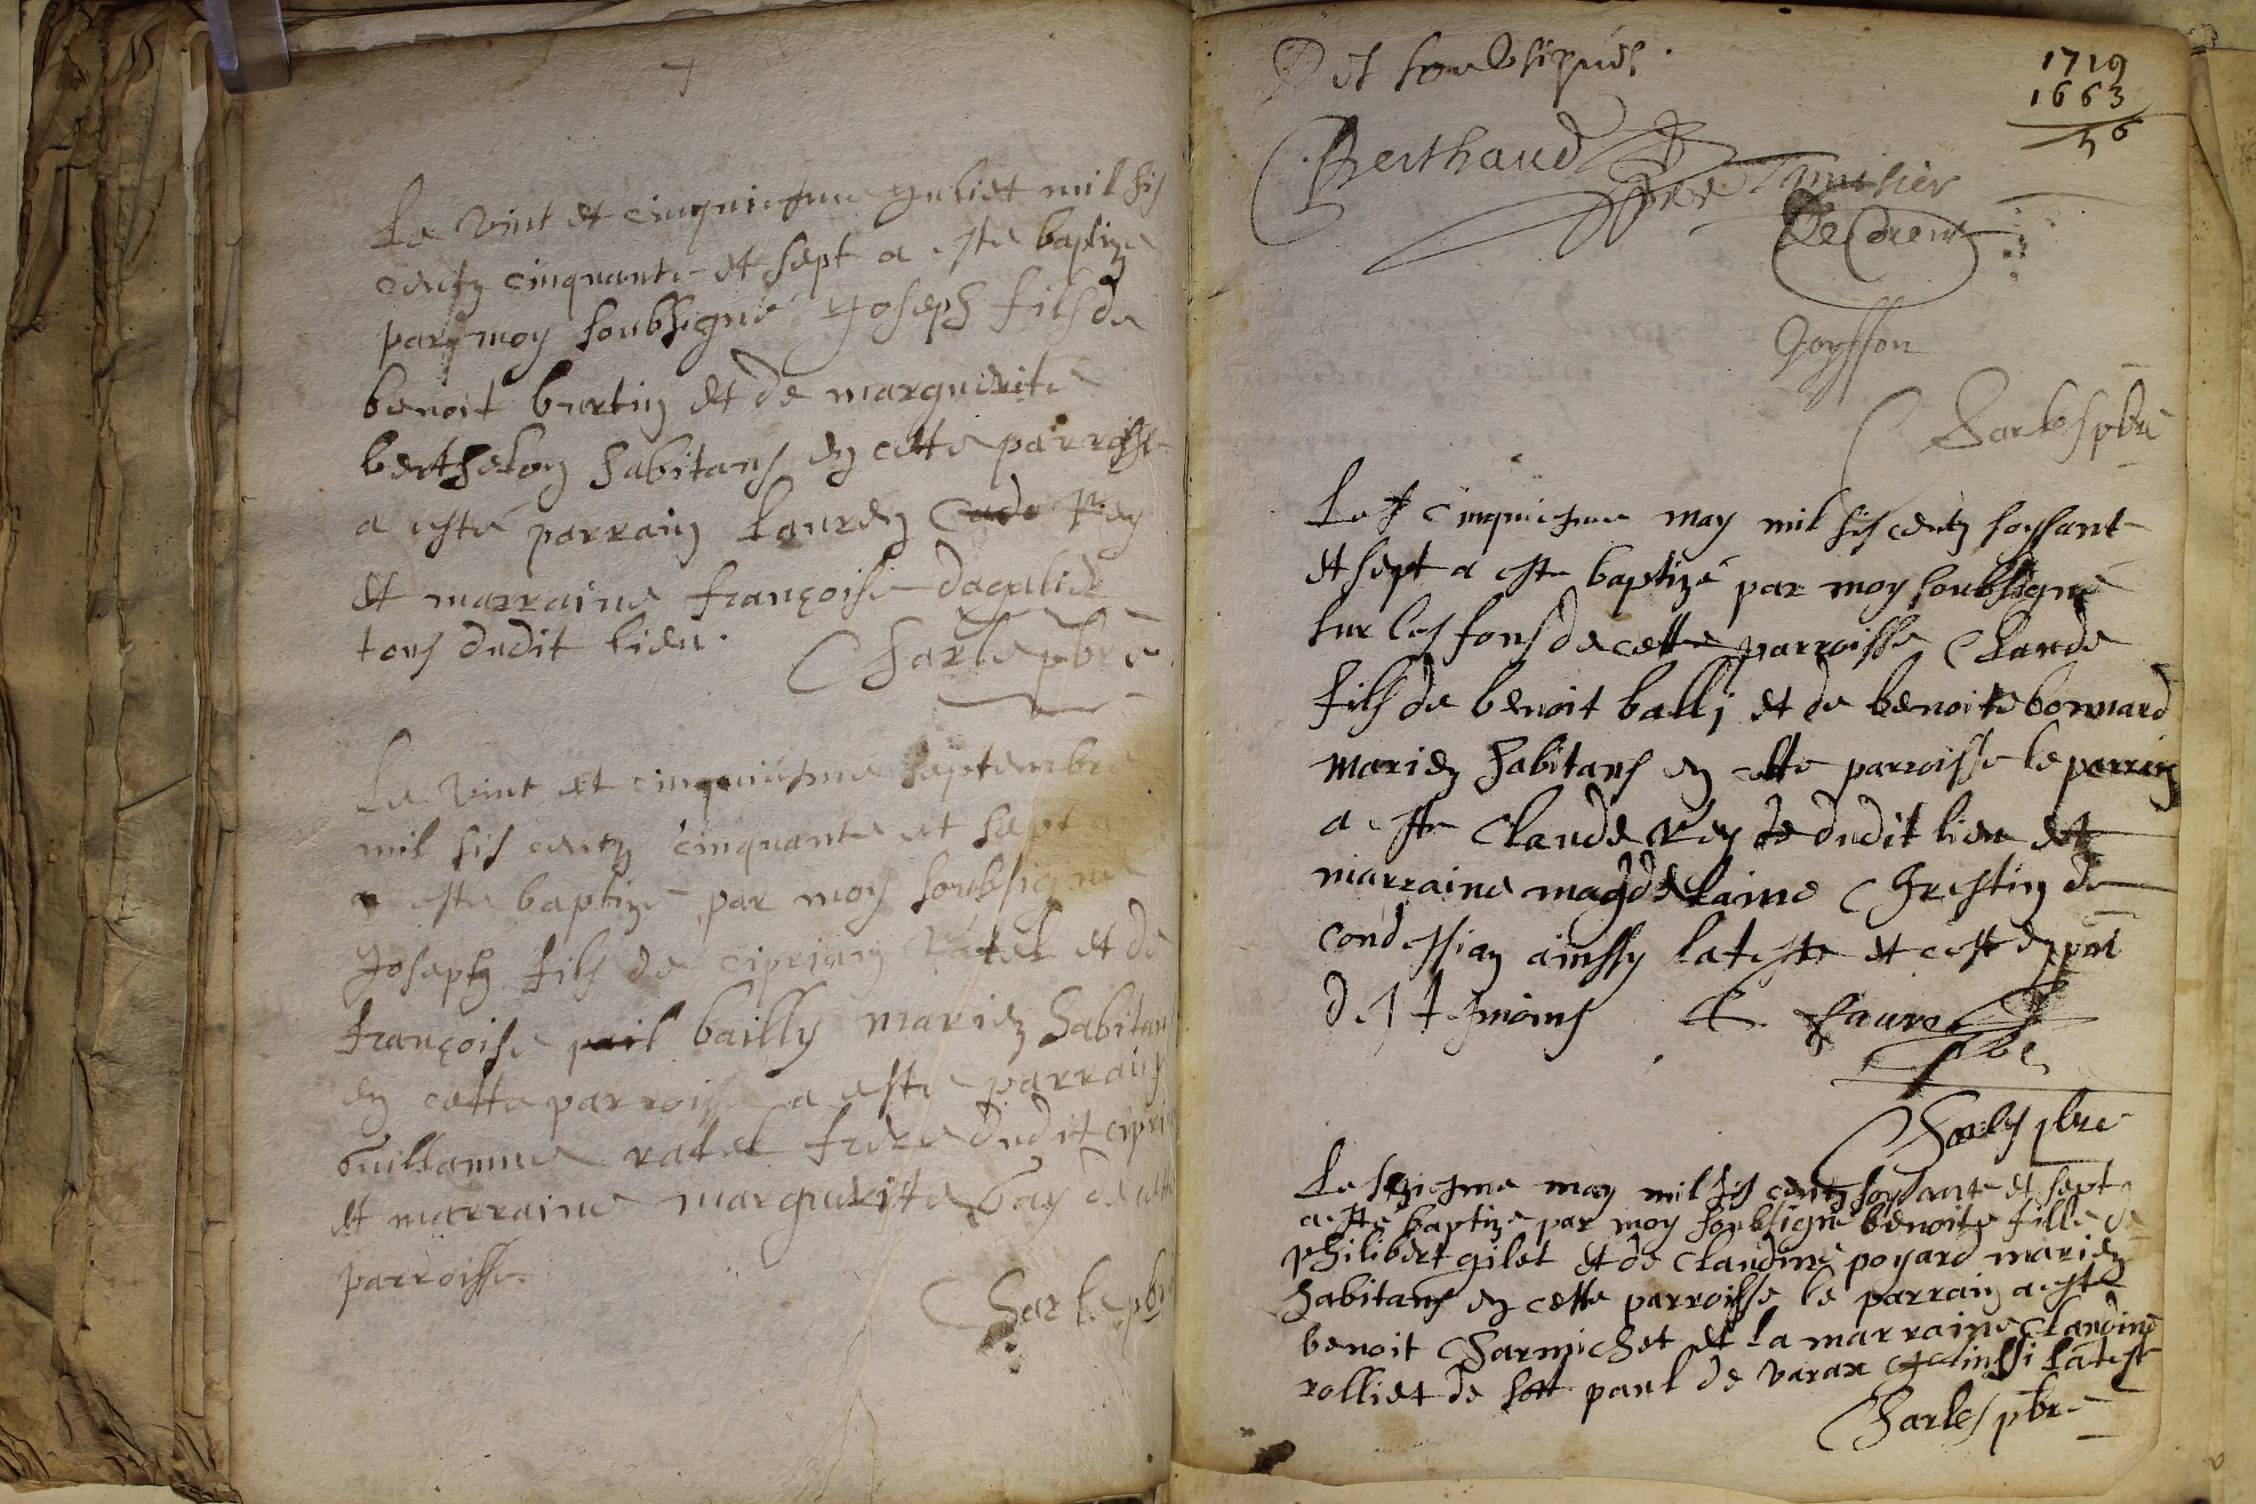 Le vint et cinquiesme juliet mil sis
centz cinquante et sept a este baptize
par moy soubsigné Joseph fils de
benoit burtin et de marguerite
berthelon habitans en cette parroisse
a esté parrain Lauren Rey
et marraine françoise
tous dudit lieu.
Charle pbre
Le vint et cinquiesme septembre
mil sis centz cinquante et sept
a este baptizé par moy soubsigne
Joseph fils de ciprian Ratel et de
françoise bailly mariez habitans
en cette parroisse a este parrain
Guillaume ratel frere dudit cipri
et marraine marguerite Gay de cette
parroisse.
Charle pbr
et soubsignés.
1719
1663
56
Berthaud
Goysson
Charles pbre
Le cinquiesme may mil sis centz soyssante
et sept a este baptizé par moy soubsigné
sur les fons de cette parroisse Claude
fils de benoit balli et de benoite bonnard
mariez habitans en cette parroisse le parrin
a este Claude Rey dudit lieu et
marraine magdelaine Chrestin de
condessian ainssy lateste et cest en pnt
des tesmoins Faure
pbe
Charles pbre
Le seziesme may mil sis centz soyssante et sept
a esté baptize par moy soubsigné benoite fille de
philibert gilet et de Claudine poyard mariez
habitans en cette parroisse le parrain a esté
benoit Charmichet et la marraine Claudine
rolliet de paul de varax ainssi lateste
Charles pbre